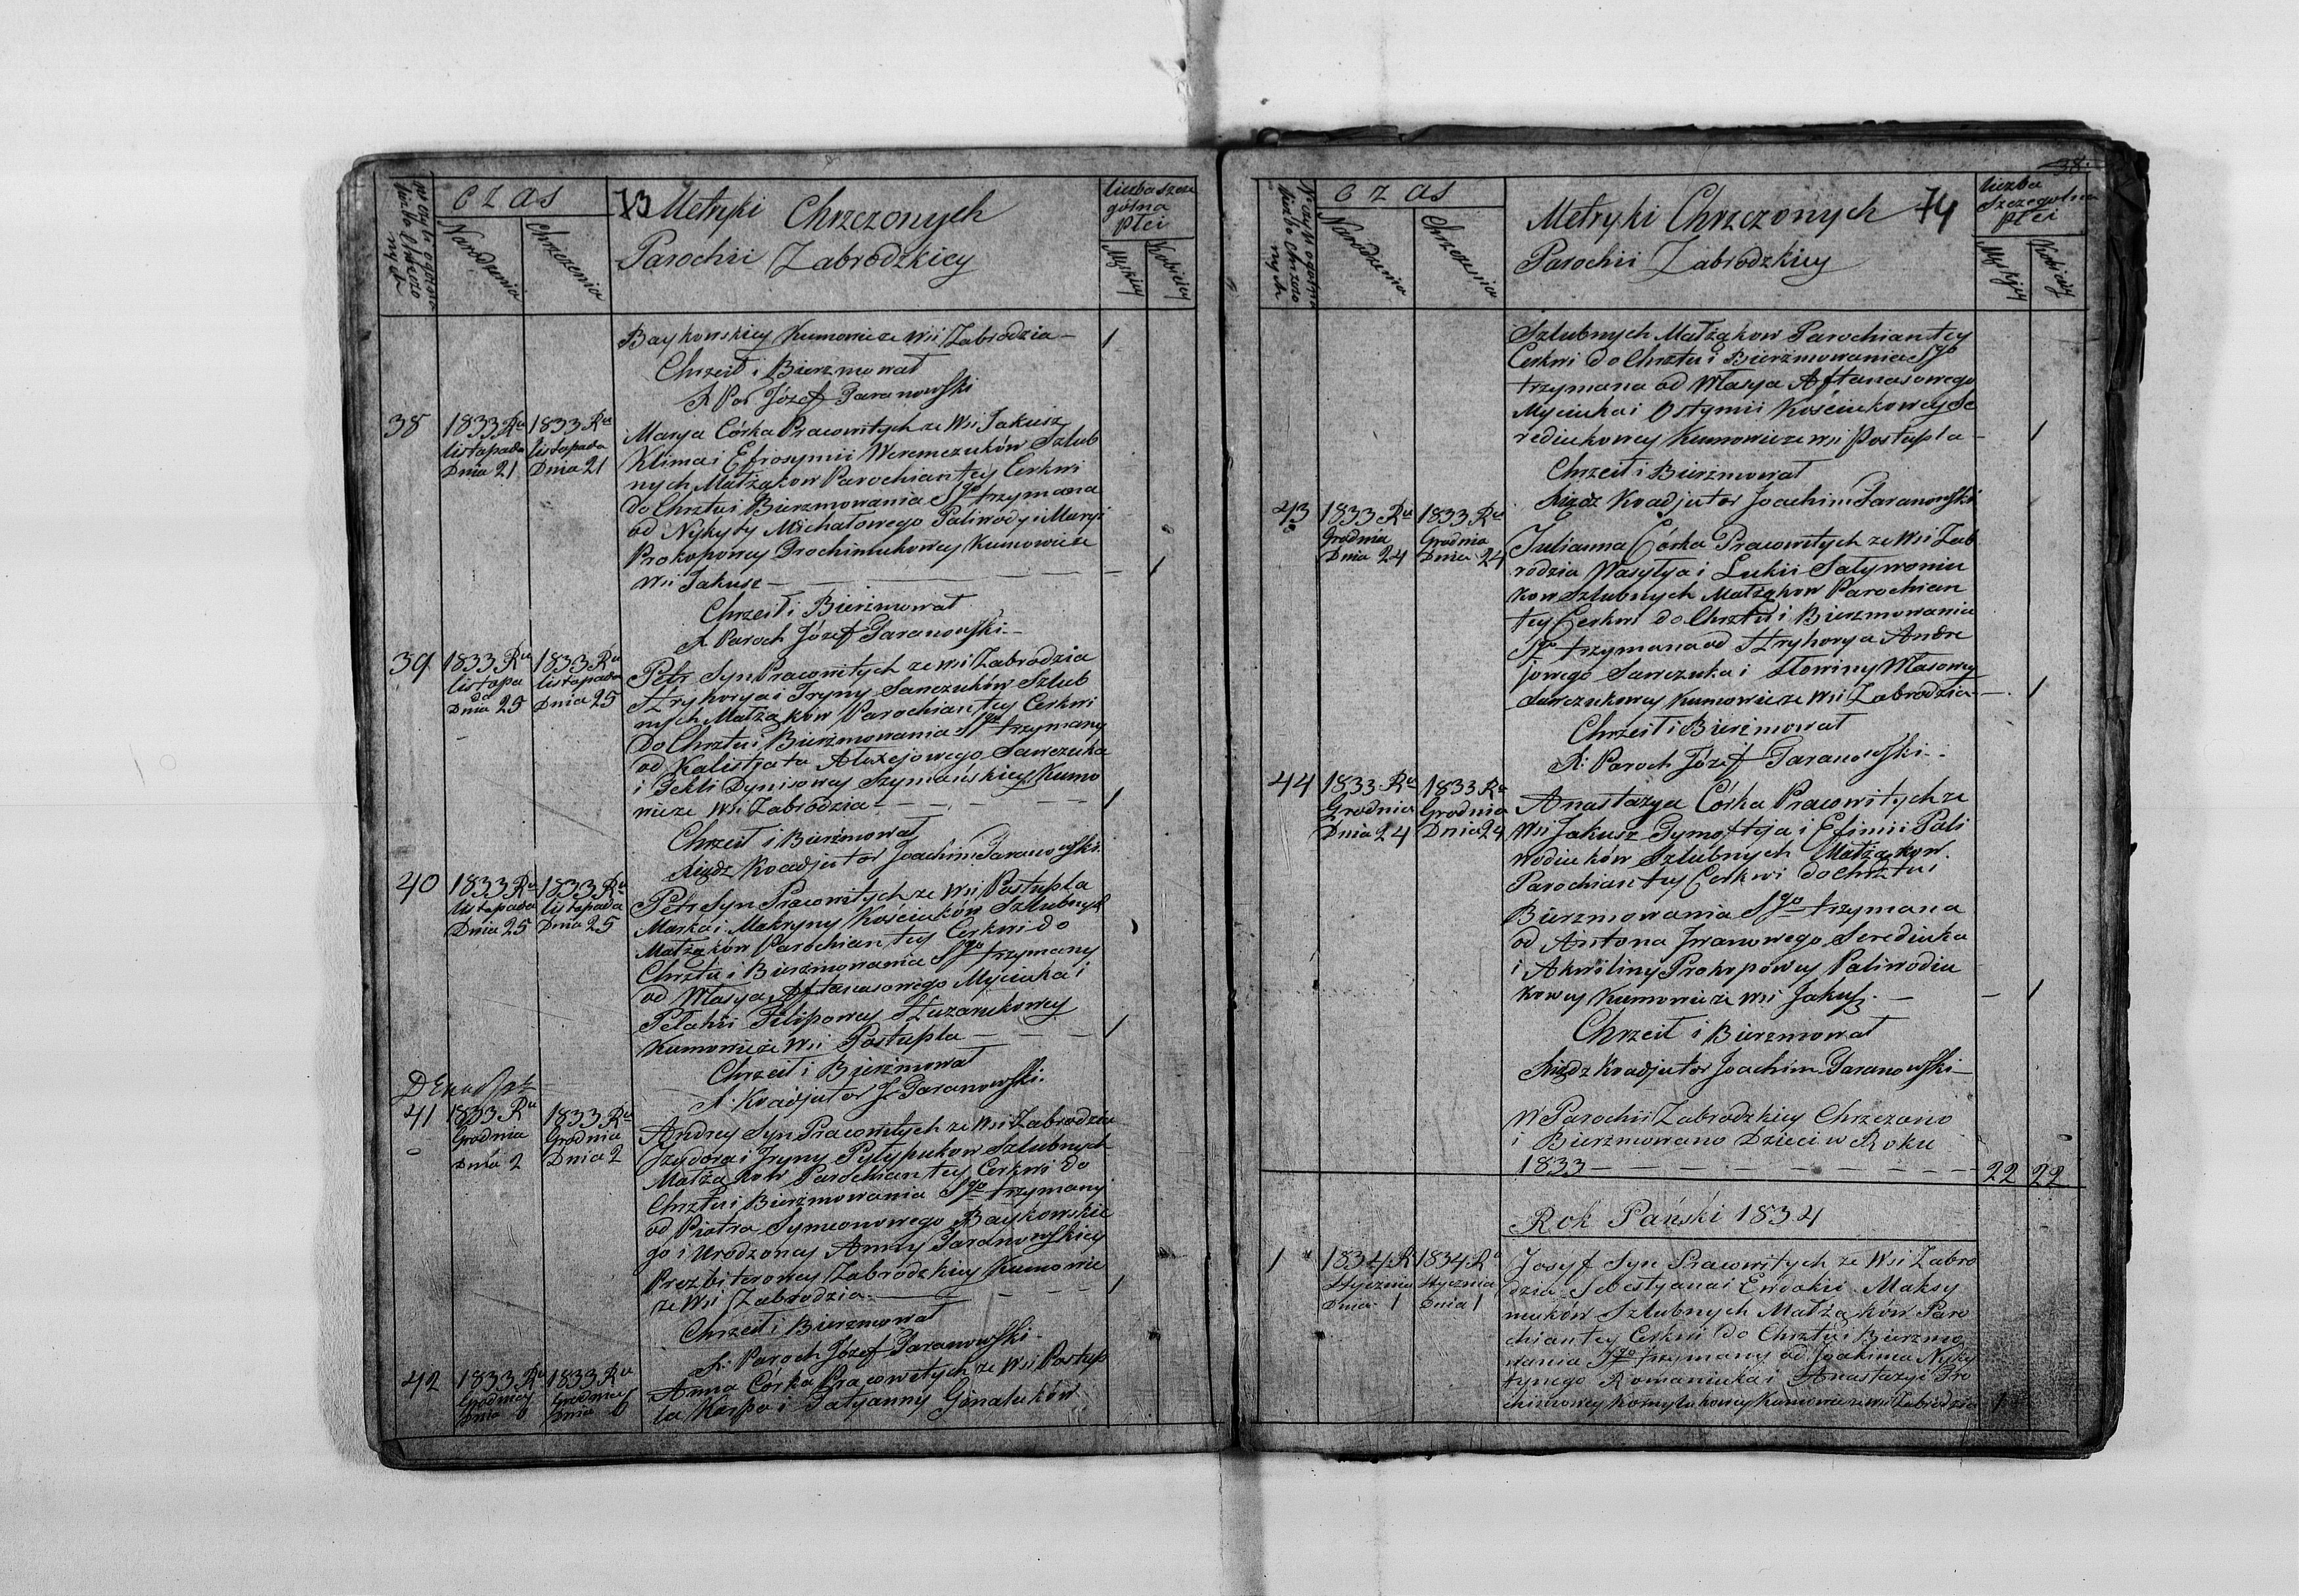 czas
73 Metryki Chrzczonych
Parochii Zabrodzkiey
liczba szcze
gólna
płci
Narodzenia
Chrzczenia
Mężkiey
Kobiecey
Baykowskiey Kumowie ze wsi Zabrodzia — 1
Chrzcił i Bierzmował
X Par Józef Taranowski
38
1833 Ru
listopada
Dnia 21
1833 Ru
listopada
Dnia 21
Marya Córka Pracowitych ze wsi Jakusz
Klima i Efrosynii Weremczuków Szlub
nych Małżąkow Parochian tey Cerkwi
do Chrztu i Bierzmowania Sgo trzymana
od Nykyty Michałowego Paliwody i Maryi
Prokopowey Prochimukowey Kumowie ze
wsi Jakusz — 1
Chrzcił i Bierzmował
X. Paroch Józef Taranowski —
39
1833 Ru
listopa
da
Dnia 25
1833 Ru
listopada
Dnia 25
Petr Syn Pracowitych ze wsi Zabrodzia
Hryhorya i Iryny Sawczuków Szlub
nych Małżąków Parochian tey Cerkwi
do Chrztu i Bierzmowania Sgo trzymany
od Kalistrata Alexejowego Sawczuka
i Tekli Dynisowey Szymańskiey Kumo
wie ze wsi Zabrodzia — 1
Chrzcił i Bierzmował
Xiądz Koadjutor Joachim Taranowski.
40
1833 Ru
listopada
Dnia 25
1833 Ru
listopada
Dnia 25
Petr Syn Pracowitych ze wsi Postupla
Marka i Makryny Kościuków Szlubnych
Małżąków Parochian tey Cerkwi do
Chrztu i Bierzmowania Sgo trzymany
od Własya Aftanasowego Myciuka i
Pełahii Filipowey
Kumowie ze wsi Postupla — 1
Chrzcił i Bierzmował
X. Koadjutor J. Taranowski.
41
1833 Ru
Grodnia
Dnia 2
1833 Ru
Grodnia
Dnia 2
Andrey Syn Pracowitych ze wsi Zabrodzia
Izydora i Iryny Pylypukow Szlubnych
Małżąkow Parochian tey Cerkwi do
Chrztu i Bierzmowania Sgo trzymany
od Piotra Symeonowego Baykowskie
go i Urodzoney Anny Taranowskiey
Prezbiterowey Zabrodzkiey Kumowie
ze wsi Zabrodzia — 1
Chrzcił i Bierzmował
X. Paroch Józef Taranowski —
42
1833 Ru
Grudnia
Dnia 6
1833 Ru
Grudnia
Dnia 6
Anna Córka Pracowitych ze wsi Postup
la Karpa i Tatyanny Gonaluków
38.
czas
Metryki Chrzczonych 74
Parochii Zabrodzkiey
liczba
szczegolna
płci
Narodzenia
Chrzczenia
Mężkiey
Kobiecey
Szlubnych Małżąkow Parochian tey
Cerkwi do Chrztu i Bierzmowania Sgo
trzymana od Własya Aftanasowego
Myciuka i Ostymii Kościukowey Se
rediukowey Kumowie ze wsi Postupla — 1
Chrzcił i Bierzmował
Xiądz Koadjutor Joachim Taranowski
43
1833 Ru
Grodnia
Dnia 24
1833 Ru
Grodnia
Dnia 24
Julianna Córka Pracowitych ze wsi Zab
rodzia Wasylya i Lukii Satywoniu
kow Szlubnych Małżąkow Parochian
tey Cerkwi do Chrztu i Bierzmowania
Sgo trzymana od Hryhorya Andre
jowego Sawczuka i Słowiny Własowey
Sawczukowey Kumowie ze wsi Zabrodzia — 1
Chrzcił i Bierzmował
X: Paroch Józef Taranowski —
44
1833 Ru
Grodnia
Dnia 24
1833 Ru
Grodnia
Dnia 24
Anastazya Córka Pracowitych ze
wsi Jakusz Tymofteja i Efimii Pali
wodiuków Szlubnych Małżąkow.
Parochian tey Cerkwi do Chrztu i
Bierzmowania Sgo trzymana
od Antona Iwanowego Serediuka
i Akwiliny Prokopowey Paliwodiu
kowey Kumowie ze wsi Jakusz. — 1
Chrzcił i Bierzmował
Xiądz Koadjutor Joachim Taranowski —
W Parochii Zabrodzkiey Chrzczono
i Bierzmowano Dzieci w Roku
1833 — 22 22
Rok Pański 1834
1
1834 R
Stycznia
Dnia 1
1834 Ru
Stycznia
Dnia 1
Josyf Syn Pracowitych ze wsi Zabro
dzia Sebestyana i Ewdokii Maksy
muków Szlubnych Małżąków Paro
chian tey Cerkwi do Chrztu i Bierzmo
wania Sgo trzymany od Joakima Nyky
tynego Romaniuka i Anastazyi Tro
chimowey Kornylukowey Kumowie ze wsi Zabrodzia 1